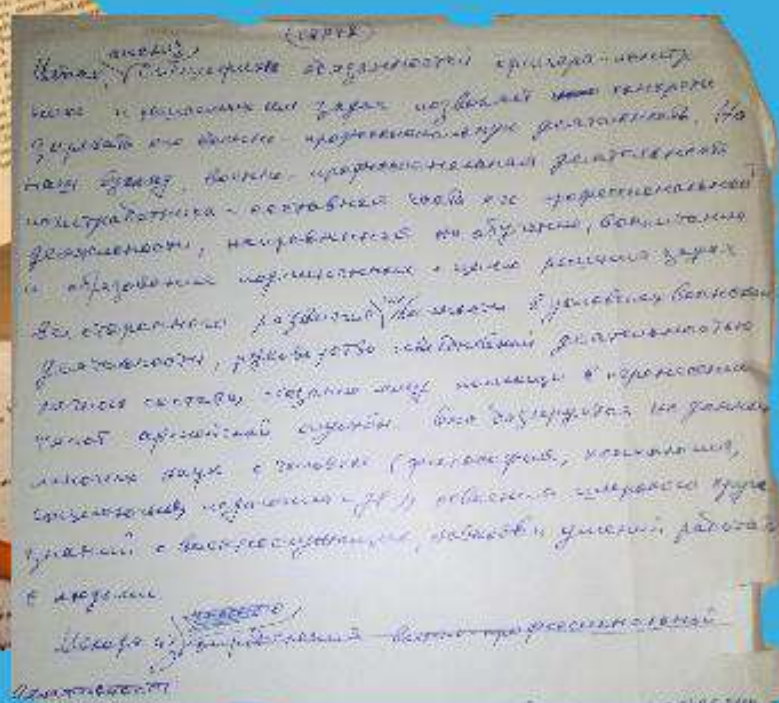 анализ
Итак, специфика обязанностей офицера-политр
и решаемых им задач позволяет конкрети
его военно-профессиональную деятельность. На
наш взгляд, военно-профессиональная деятельность
политработника - составная часть его профессиональной
деятельности, направленная на обучение, воспитание
и образование подчиненных с целью решения задач
всестороннего развития личности в условиях воинской
деятельности, руководство служебной деятельностью
личного состава, оказание ему помощи в перенесении
тягот армейской службы. Она базируется на данных
многих наук о человеке (философия, психология,
социология, педагогика и др.), освоении широкого круга
знаний о военнослужащих, навыков и умений работать
с людьми
Исходя из определения военно-профессиональной
деятельности